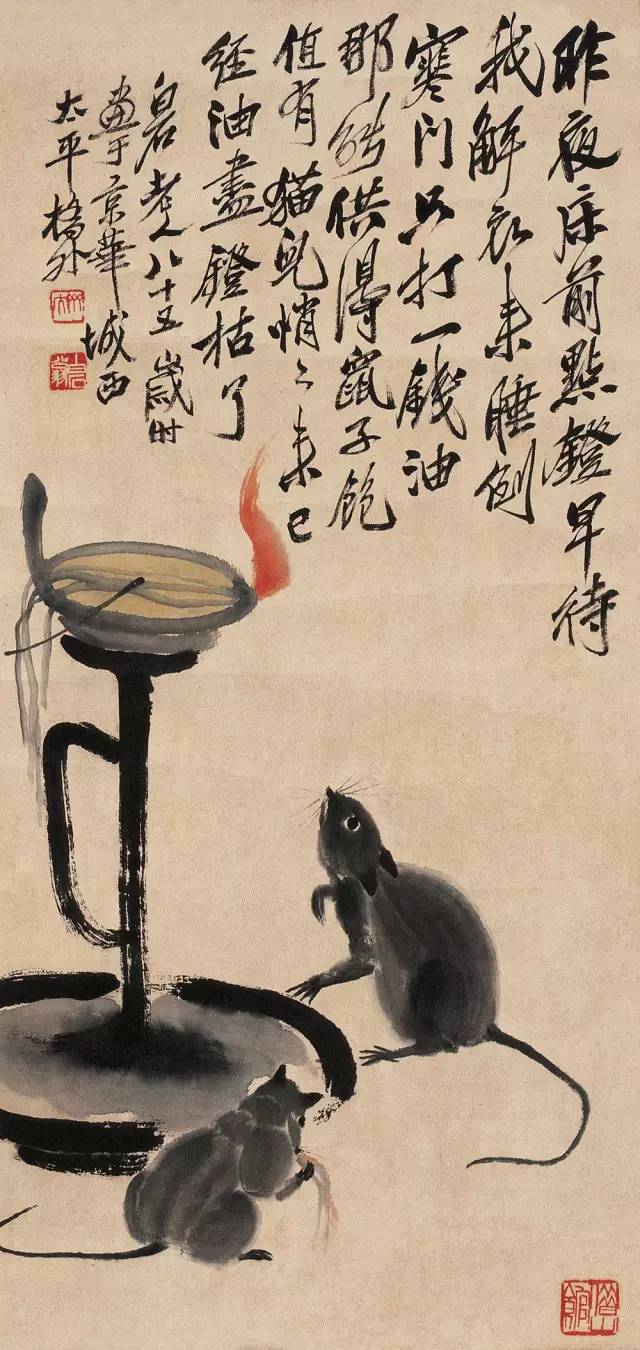 昨夜床前點鐙早待
我解衣来睡倒
寒门只打一錢油
那能供得鼠子飽
值有猫兒悄々来已
經油盡鐙枯了
白石老人八十五歲时
畫于京華城西
太平橋外
白石翁